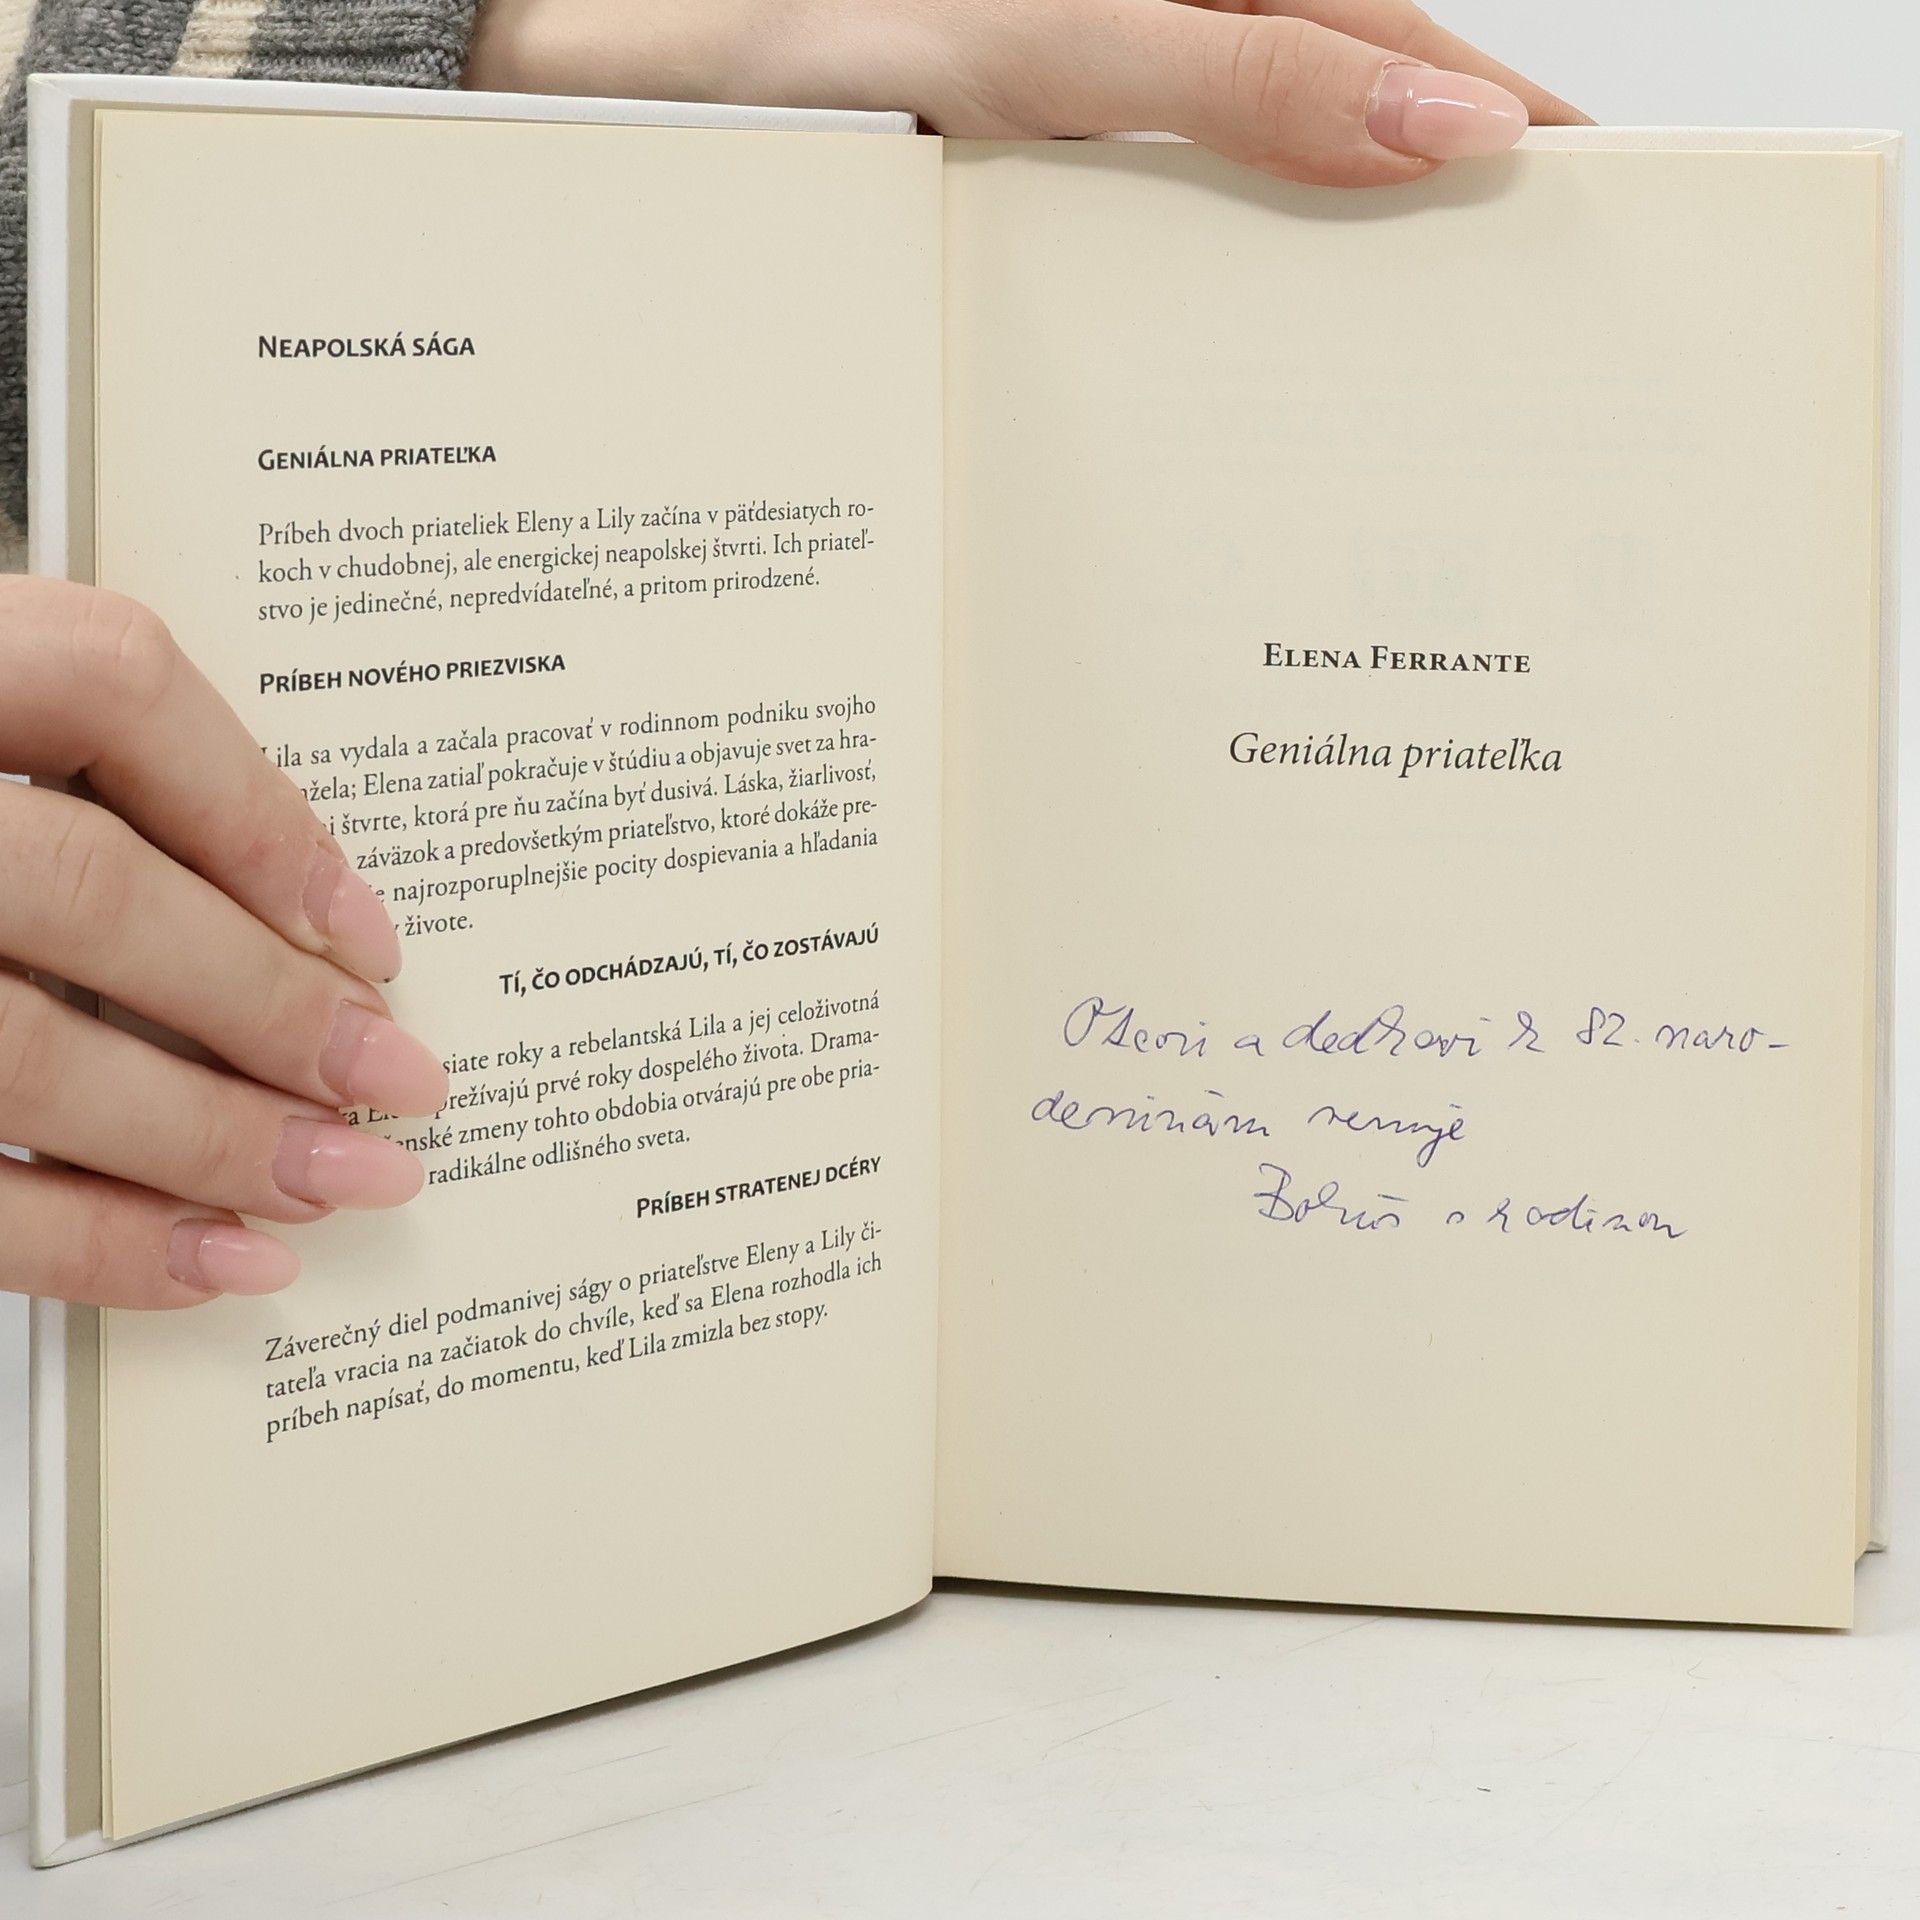 NEAPOLSKÁ SÁGA
GENIÁLNA PRIATEĽKA
Príbeh dvoch priateliek Eleny a Lily začína v päťdesiatych ro-
koch v chudobnej, ale energickej neapolskej štvrti. Ich priateľ-
stvo je jedinečné, nepredvídateľné, a pritom prirodzené.
PRÍBEH NOVÉHO PRIEZVISKA
Lila sa vydala a začala pracovať v rodinnom podniku svojho
Elena zatiaľ pokračuje v štúdiu a objavuje svet za hra-
štvrte, ktorá pre ňu začína byť dusivá. Láska, žiarlivosť,
záväzok a predovšetkým priateľstvo, ktoré dokáže pre-
najrozporuplnejšie pocity dospievania a hľadania
živote.
TÍ, ČO ODCHÁDZAJÚ, TÍ, ČO ZOSTÁVAJÚ
siate roky a rebelantská Lila a jej celoživotná
prežívajú prvé roky dospelého života. Drama-
zmeny tohto obdobia otvárajú pre obe pria-
radikálne odlišného sveta.
PRÍBEH STRATENEJ DCÉRY
Záverečný diel podmanivej ságy o priateľstve Eleny a Lily či-
tateľa vracia na začiatok do chvíle, keď sa Elena rozhodla ich
príbeh napísať, do momentu, keď Lila zmizla bez stopy.
ELENA FERRANTE
Geniálna priateľka
Otcovi a dedkovi k 82. naro-
deninám venuje
Bohuš s rodinou